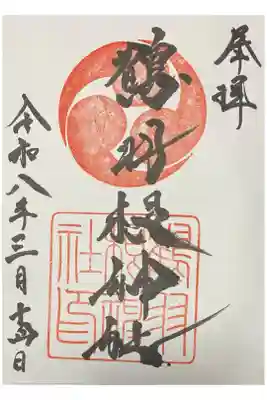 奉拝
鶴羽根神社
令和八年三月日
鶴羽
根神
社印